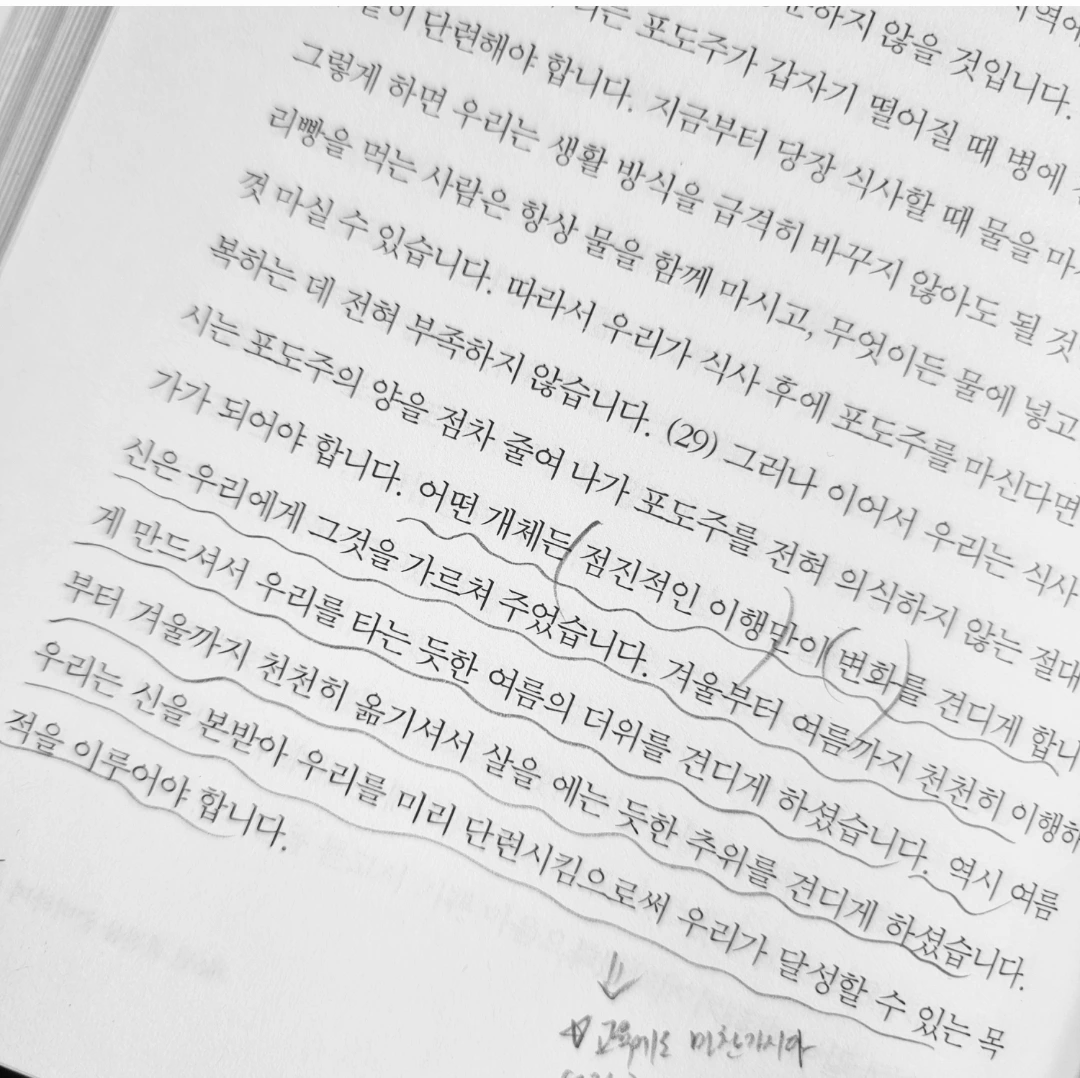 하지 않을 것입니다.
포도주가 갑자기 떨어질 때 병에
단련해야 합니다. 지금부터 당장 식사할 때 물을 마
그렇게 하면 우리는 생활 방식을 급격히 바꾸지 않아도 될 것
리빵을 먹는 사람은 항상 물을 함께 마시고, 무엇이든 물에 넣고
것 마실 수 있습니다. 따라서 우리가 식사 후에 포도주를 마신다면
복하는 데 전혀 부족하지 않습니다. (29) 그러나 이어서 우리는 식사
시는 포도주의 양을 점차 줄여 나가 포도주를 전혀 의식하지 않는 절대
가가 되어야 합니다. 어떤 개체든 점진적인 이행만이 변화를 견디게 합니
신은 우리에게 그것을 가르쳐 주었습니다. 겨울부터 여름까지 천천히 이행하
게 만드셔서 우리를 타는 듯한 여름의 더위를 견디게 하셨습니다. 역시 여름
부터 겨울까지 천천히 옮기셔서 살을 에는 듯한 추위를 견디게 하셨습니다.
우리는 신을 본받아 우리를 미리 단련시킴으로써 우리가 달성할 수 있는 목
적을 이루어야 합니다.
교육에도 마찬가지야